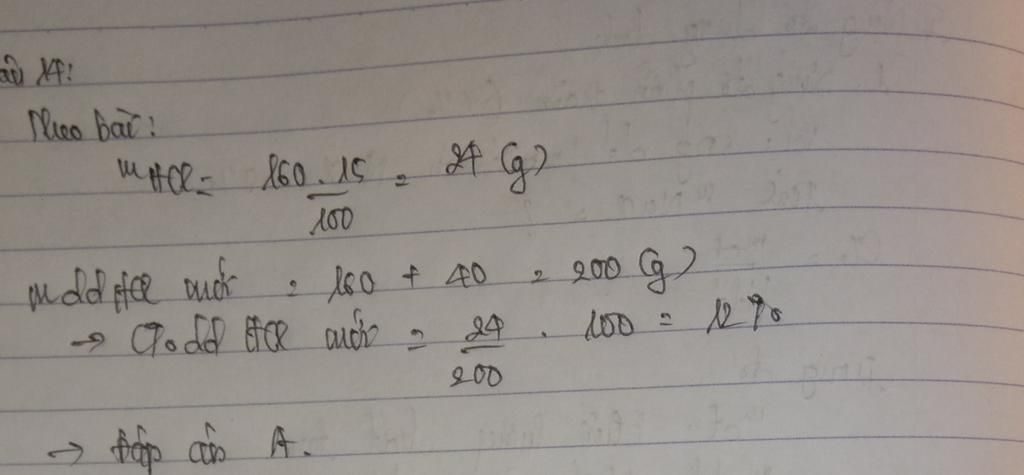 Câu 14:
Theo bài:
mHCl = 160 . 15 / 100 = 24 (g)
mdd HCl mới = 160 + 40 = 200 (g)
→ C% dd HCl mới = 24 / 200 . 100 = 12 %
→ Đáp án A.